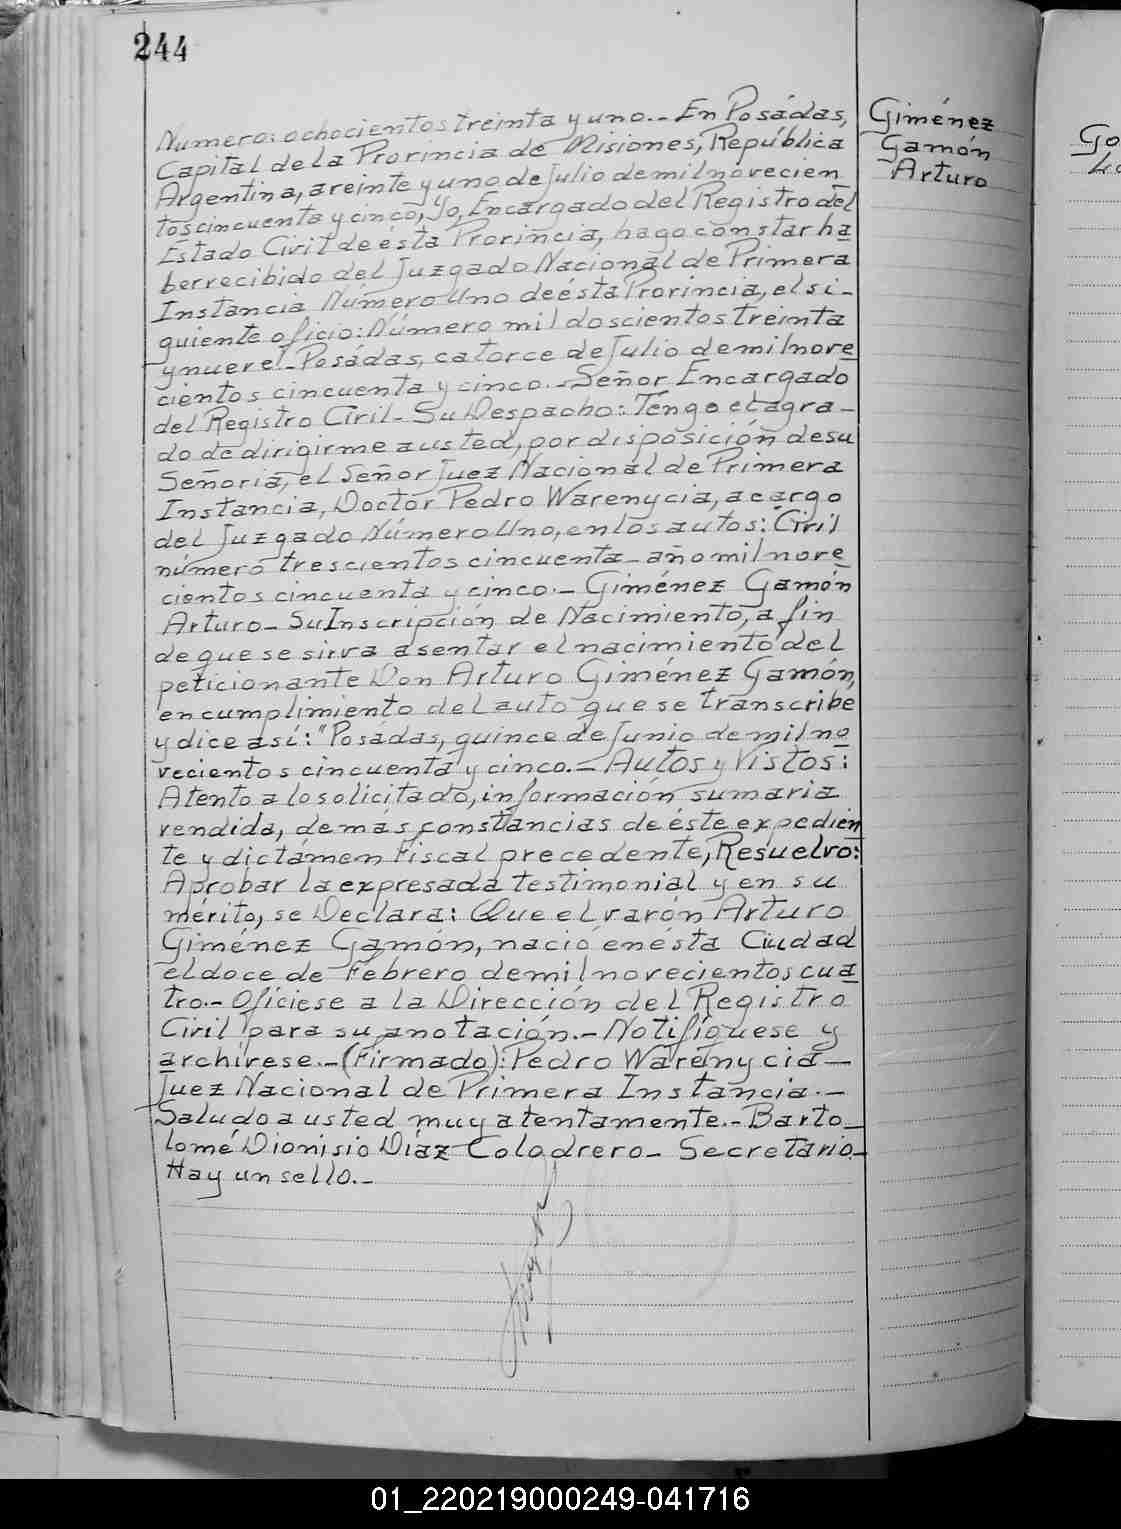 244
Numero: ochocientos treinta y uno.- En Posádas,
Capital de la Provincia de Misiones, República
Argentina, a veinte y uno de Julio de mil novecien
tos cincuenta y cinco, Yo, Encargado del Registro del
Estado Civil de ésta Provincia, hago constar ha
ber recibido del Juzgado Nacional de Primera
Instancia Número Uno de ésta Provincia, el si-
guiente oficio: Número mil doscientos treinta
y nueve!- Posádas, catorce de Julio de mil nove
cientos cincuenta y cinco.- Señor Encargado
del Registro Civil- Su Despacho: Téngo el agra-
do de dirigirme a usted, por disposición de su
Señoria, el Señor Juez Nacional de Primera
Instancia, Doctor Pedro Warenycia, a cargo
del Juzgado Número Uno, en los autos: Civil
número trescientos cincuenta- año mil nove
cientos cincuenta y cinco.- Giménez Gamón
Arturo- Su Inscripción de Nacimiento, a fin
de que se sirva asentar el nacimiento del
peticionante Don Arturo Giménez Gamón,
en cumplimiento del auto que se transcribe
y dice así: "Posádas, quince de Junio de mil no
vecientos cincuenta y cinco.- Autos y Vistos:
Atento a lo solicitado, información sumaria
rendida, demás constancias de éste expedien
te y dictámen Fiscal precedente, Resuelvo:
Aprobar la expresada testimonial y en su
mérito, se Declara: Que el varón Arturo
Giménez Gamón, nació en ésta Ciudad
el doce de Febrero de mil novecientos cua
tro.- Ofíciese a la Dirección del Registro
Civil para su anotación.- Notifíquese y
archívese.- (Firmado): Pedro Warenycia-
Juez Nacional de Primera Instancia.-
Saludo a usted muy atentamente.- Barto-
lomé Dionisio Díaz Colodrero- Secretario.-
Hay un sello.-
Giménez
Gamón
Arturo
Go
01_220219000249-041716